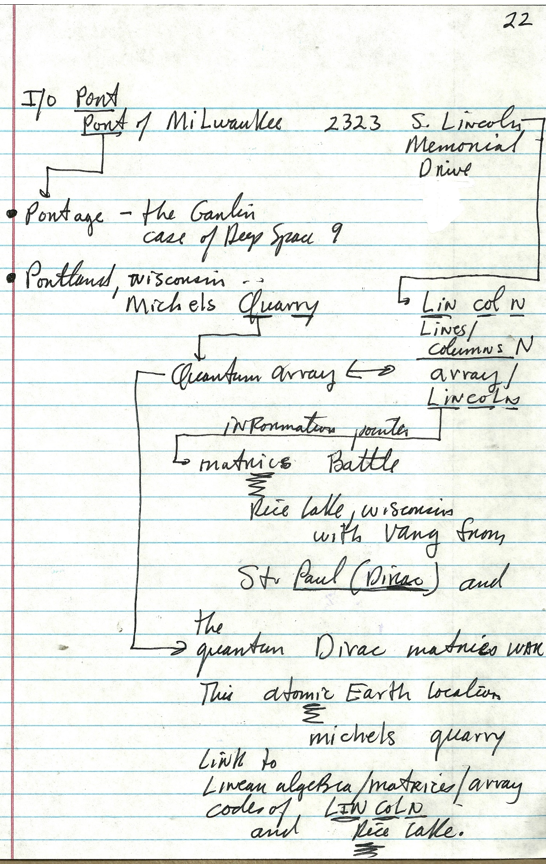 22
I/o Pont
Pont of Milwaukee 2323 S. Lincoln
Memorial
Drive
• Pontage - the Ganlin
case of Deep Space 9
• Pontland, wisconsin --
Michels Quarry
Lin col N
Lines/
columns N
Quantum array ↔ array/
LincoLn
information pointer
matrics Battle
Rice Lake, wisconsin
with Vang from
St. Paul (Dirac) and
the
quantum Dirac matrics war
This atomic Earth location
michels quarry
Link to
Linear algebra/matrices/array
codes of LINCOLN
and Rice Lake.